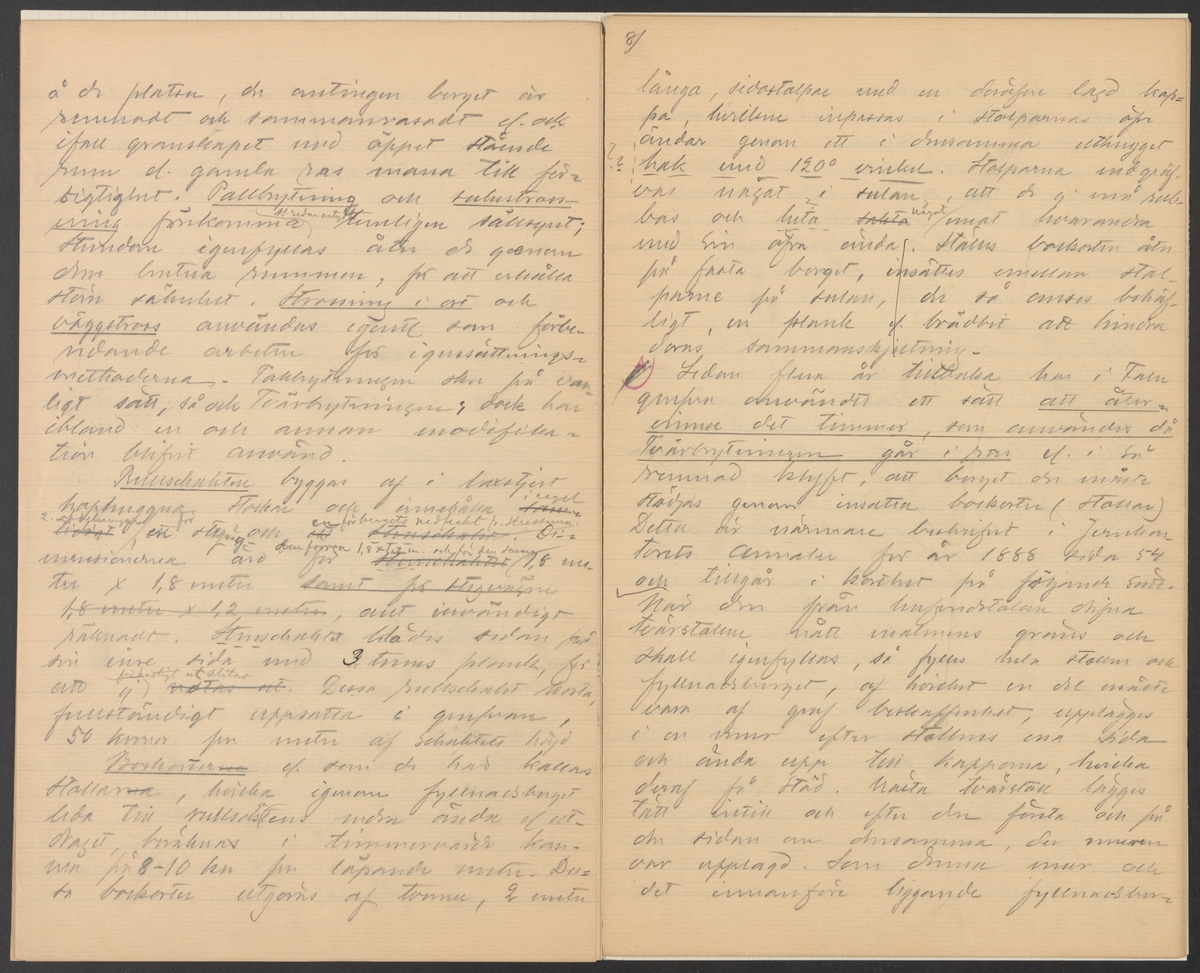 å de platser, der antingen berget är
remnadt och sammanrasadt el. ock
ifall granskapet med öppet stående
rum el. gamla ras mana till för-
sigtighet. Pallbrytning och sulustross-
ning förekomma temligen sällsynt;
stundom igenfyllas åter de genom
dem brutna rummen, för att erhålla
större säkerhet. Strossning i ort och
väggstross användas egentl. som förbe-
redande arbeten för igensättnings-
methoderna. Takbrytningen sker på van-
ligt sätt, så och Tvärbrytningen; dock har
ibland en och annan modifika-
tion blifvit använd.
Rullschakten byggas af i laxstjert
hophuggna stockar och innehålla i regel
2. afdelningar för en stegväg och en för bergets nedsläpp
mensionerna äro för den förra 1,8 m. och för den senare 1,8 me-
ter x 1,8 meter samt för stegvägen
1,8 meter x 1,2 meter, allt invändigt
räknadt. Stenschaktet klädes sidan på
sin inre sida med 3 tums plank, för
att ej nötas ut. Dessa rullschakt kosta,
fullständigt uppsatta i grufvan,
50 kronor per meter af schaktets höjd
Bockorterna el. som de här kallas
stollarna, hvilka igenom fyllnadsberget
leda till rullschaktens nedre ända el. ut-
draget, beräknas i timmervärde kun-
na på 8-10 kr per löpande meter. Des-
sa bockorter utgöras af tvenne, 2 meter
8/
långa, sidostolpar med en deröfver lagd kap-
pa, hvilken inpassas i stolparnas öfre
ändar genom ett i densamma uthugget
?? hak med 120° vinkel. Stolparna nedgräf-
vas något i sulan, att de ej må rub-
bas och luta något emot hvarandra
med sin öfra ända. Ställes bockorten åter
på fasta berget, insättes emellan stol-
parne på sulan, der så anses behöf-
ligt, en plank el. brädbit att hindra
deras sammanskjutning.
Sedan flera år tillbaka har i Falu
grufva användts ett sätt att åter-
vinna det timmer, som användes då
Tvärbrytningen går i ras el. i så
remnad klyft, att berget der måste
stödjas genom insatta bockorter (stollar)
Detta är närmare beskrifvet i Jernkon-
torets Annaler för år 1888 sida 54
och tillgår i korthet på följande sätt.
När den från hufvudstollen drifna
tvärstollen nått malmens gräns och
skall igenfyllas, så fylles hela stollen och
fyllnadsberget, af hvilket en del måste
vara af grof beskaffenhet, upplägges
i en mur efter stollens ena sida
och ända upp till kapporna, hvilka
deraf få stöd. Nästa tvärstoll lägges
tätt intill och efter den första och på
den sidan om densamma, der muren
var upplagd. Som denna mur och
det innanföre liggande fyllnadsber-